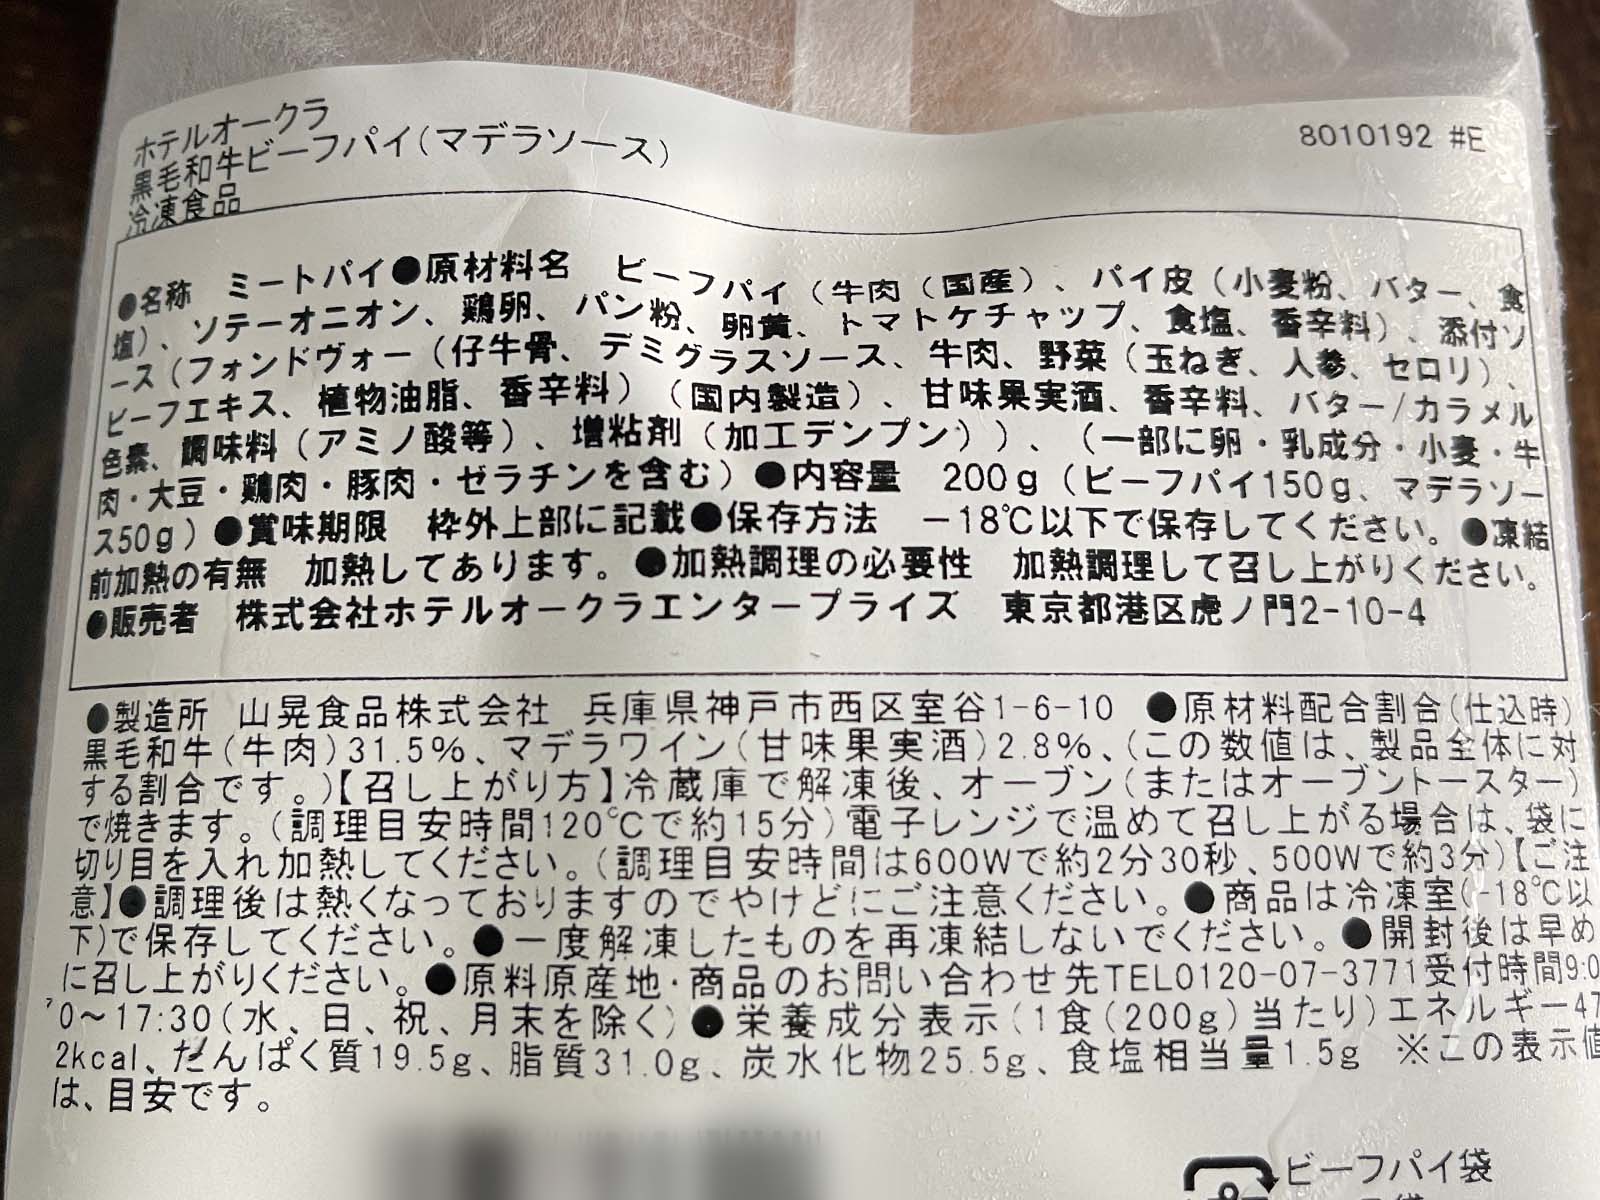 ホテルオークラ
黒毛和牛ビーフパイ(マデラソース)
8010192 #E
冷凍食品
●名称 ミートパイ●原材料名 ビーフパイ(牛肉(国産)、パイ皮(小麦粉、バター、食
塩)、ソテーオニオン、鶏卵、パン粉、卵黄、トマトケチャップ、食塩、香辛料)、添付ソ
ース(フォンドヴォー(仔牛骨、デミグラスソース、牛肉、野菜(玉ねぎ、人参、セロリ)、
ビーフエキス、植物油脂、香辛料)(国内製造)、甘味果実酒、香辛料、バター/カラメル
色素、調味料(アミノ酸等)、増粘剤(加工デンプン))、(一部に卵・乳成分・小麦・牛
肉・大豆・鶏肉・豚肉・ゼラチンを含む)●内容量 200g(ビーフパイ150g、マデラソー
ス50g)●賞味期限 枠外上部に記載●保存方法 －18℃以下で保存してください。●凍結
前加熱の有無 加熱してあります。●加熱調理の必要性 加熱調理して召し上がりください。
●販売者 株式会社ホテルオークラエンタープライズ 東京都港区虎ノ門2-10-4
●製造所 山晃食品株式会社 兵庫県神戸市西区室谷1-6-10 ●原材料配合割合(仕込時)
黒毛和牛(牛肉)31.5%、マデラワイン(甘味果実酒)2.8%、(この数値は、製品全体に対
する割合です。)【召し上がり方】冷蔵庫で解凍後、オーブン(またはオーブントースター)
で焼きます。(調理目安時間120℃で約15分)電子レンジで温めて召し上がる場合は、袋に
切り目を入れ加熱してください。(調理目安時間は600Wで約2分30秒、500Wで約3分)【ご注
意】●調理後は熱くなっておりますのでやけどにご注意ください。●商品は冷凍室(-18℃以
下)で保存してください。●一度解凍したものを再凍結しないでください。●開封後は早め
に召し上がりください。●原料原産地・商品のお問い合わせ先TEL0120-07-3771受付時間9:0
0～17:30(水、日、祝、月末を除く)●栄養成分表示(1食(200g)当たり)エネルギー47
2kcal、たんぱく質19.5g、脂質31.0g、炭水化物25.5g、食塩相当量1.5g ※この表示値
は、目安です。
ビーフパイ袋